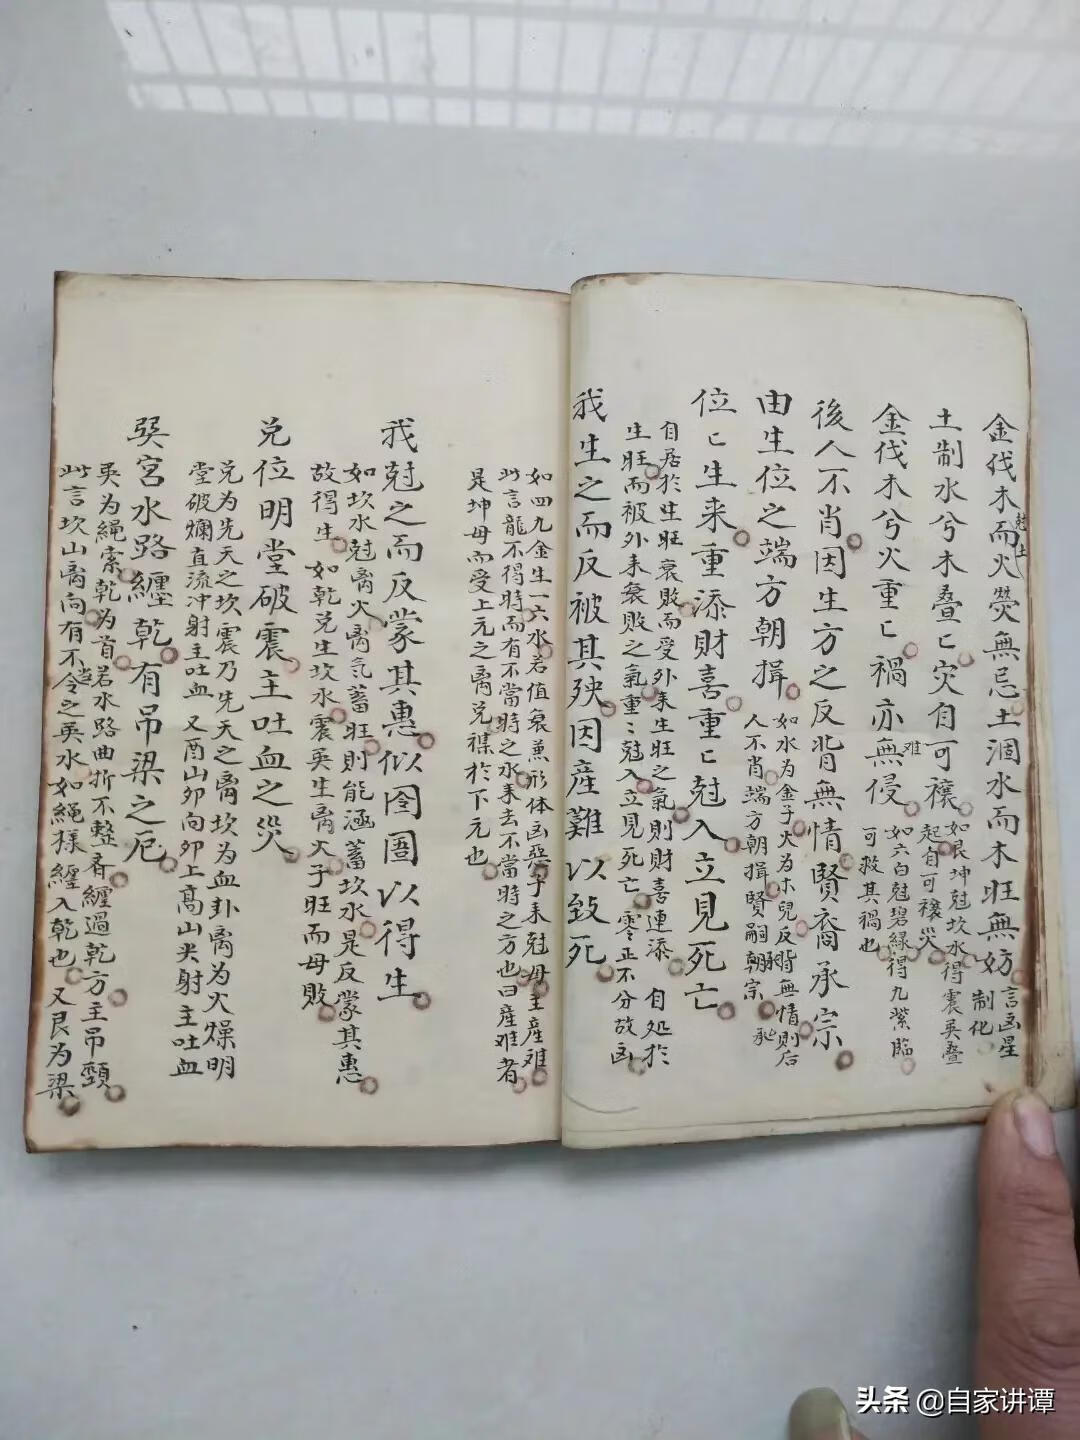 金伐木而火熒無忌土涸水而木旺無妨
尅土
言凶星
制化
土制水兮木叠〻灾自可禳
如艮坤尅坎水得震巽叠
起自可禳災
金伐木兮火重〻禍亦無侵
难
如六白尅碧綠得九紫臨
可救其禍也
後人不肖因生方之反背無情賢裔承宗
由生位之端方朝揖
如水为金子火为木兒反背無情則后
人不肖端方朝揖賢嗣朝宗
位〻生来重添財喜重〻尅入立見死亡
自居於生旺衰敗而受外来生旺之氣則財喜連添 自处於
生旺而被外来衰敗之氣重〻尅入立見死亡 零正不分故凶
我生之而反被其殃因産難以致死
如四九金生一六水若值衰蕉形体凶惡子来尅母主産难
此言龍不得時而有不當時之水来去不當時之方也曰産难者
是坤母而受上元之离兑襍於下元也
我尅之而反蒙其惠似囹圄以得生
如坎水尅离火离氣蓄旺則能涵蓄坎水是反蒙其惠
故得生 如乾兑生坎水震巽生离火子旺而母敗
兑位明堂破震主吐血之災
兑为先天之坎震乃先天之离坎为血卦离为火燥明
堂破爛直流冲射主吐血 又酉山夘向夘上高山尖射主吐血
巽宮水路纏乾有吊梁之厄
巽为繩索乾为首若水路曲折不整齊纏過乾方主吊頸
此言坎山离向有不当令之巽水如繩樣纏入乾也 又艮为梁
头条 @自家讲谭